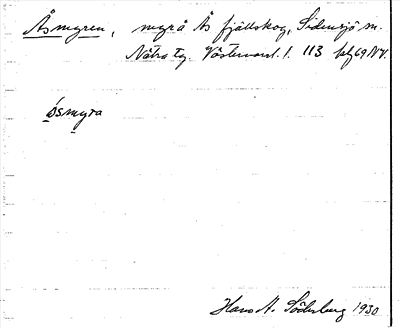 Åsmyren, myr å Ås fjällskog, Sidensjö sn.
Nätra tg. Västernorrl. l. 113 bl 69 NV.
ósmyra
Hans A. Söderberg 1930